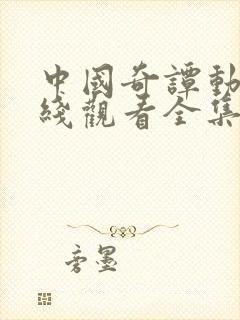 中國奇譚動
綫觀看全集
旁墨